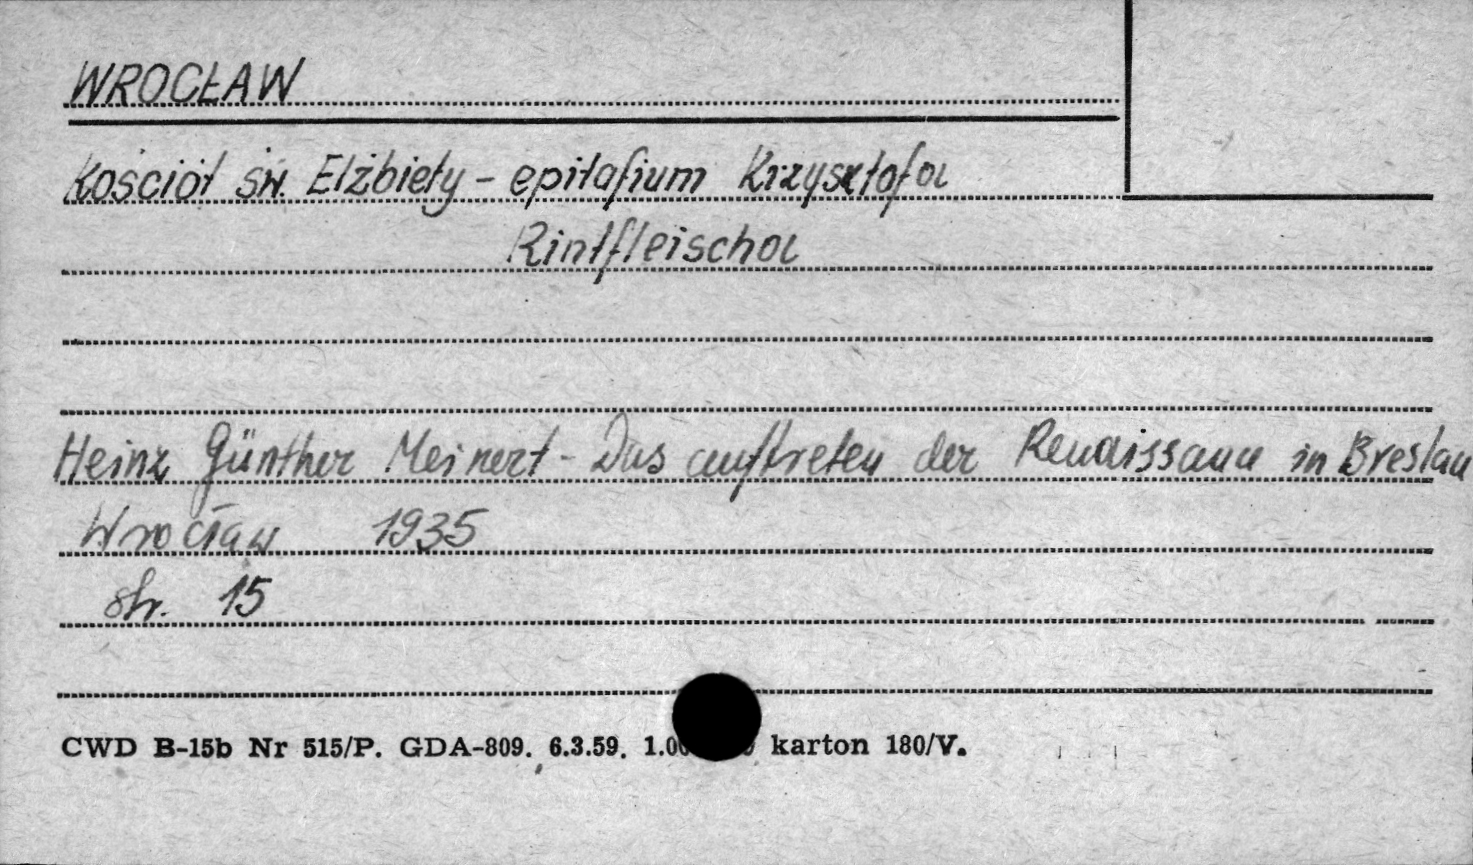 WROCŁAW
Kościół św. Elżbiety - epitafium Krzysztofa
Rintfleischa
Heinz Günther Meinert - Das auftreten der Renaissance in Breslau
Wrocław 1935
str. 15
CWD B-15b Nr 515/P. GDA-809. 6.3.59. karton 180/V.